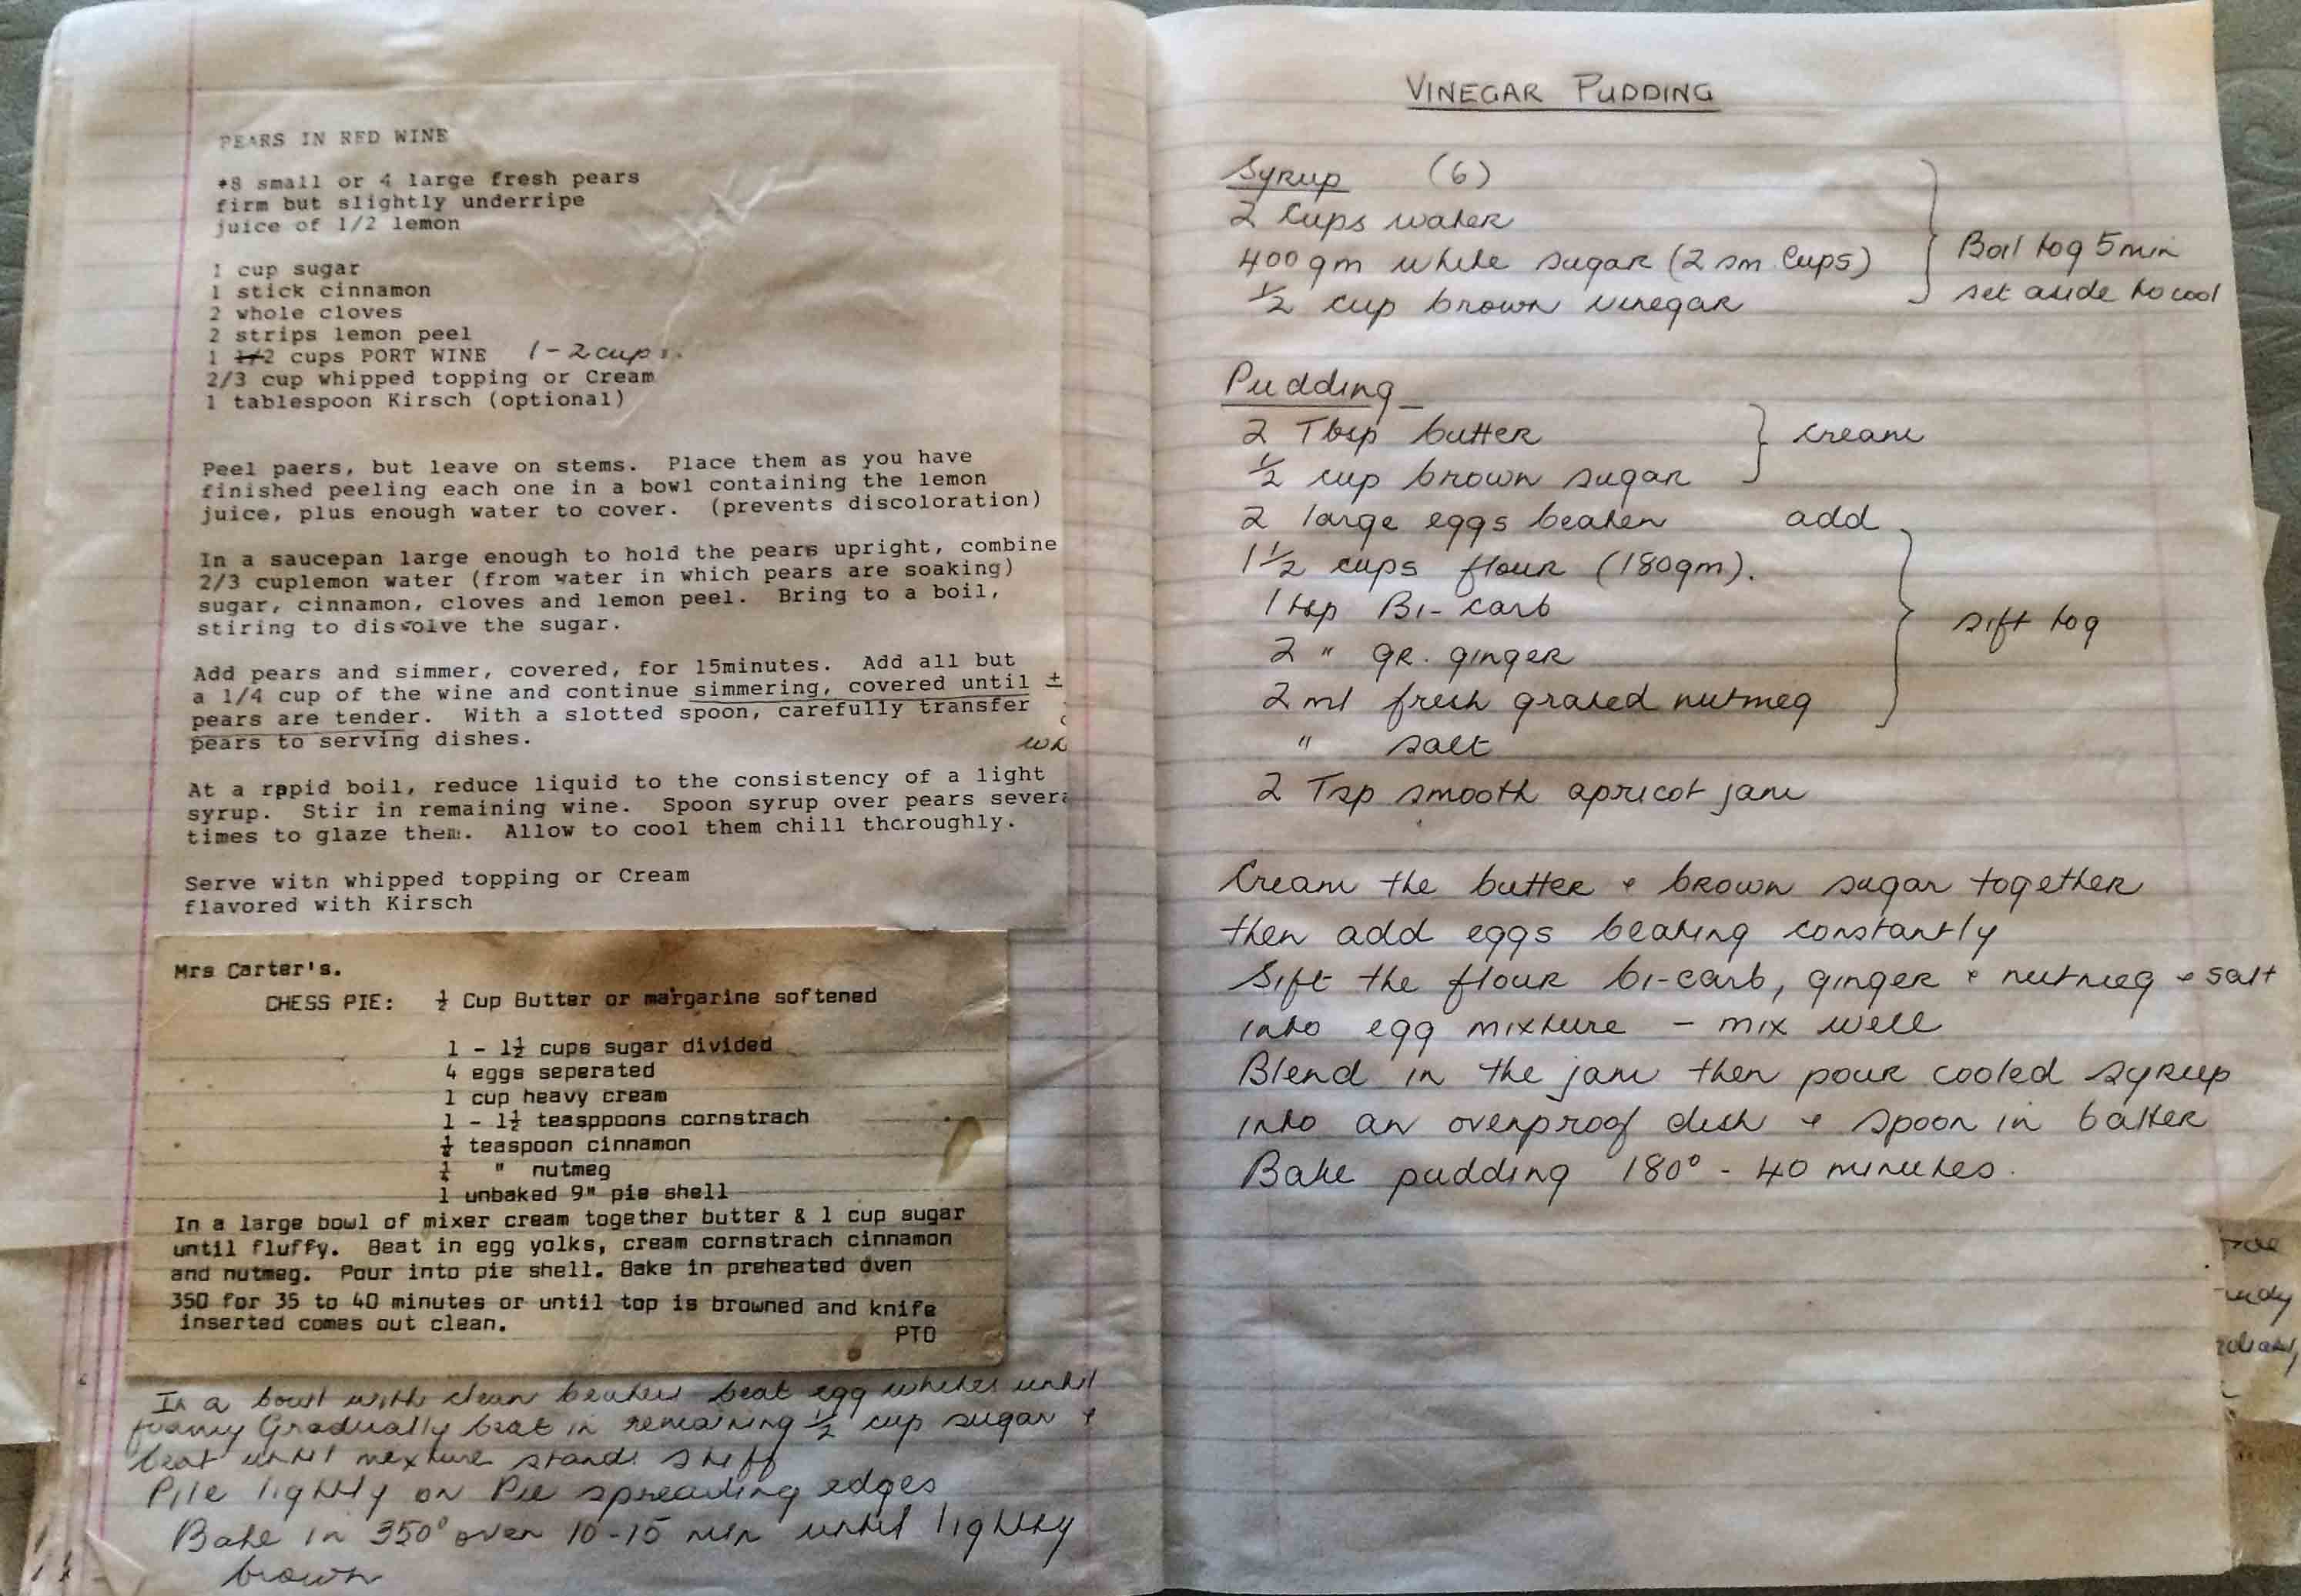 PEARS IN RED WINE
*8 small or 4 large fresh pears
firm but slightly underripe
juice of 1/2 lemon
1 cup sugar
1 stick cinnamon
2 whole cloves
2 strips lemon peel
1 1/2 cups PORT WINE 1-2 cups.
2/3 cup whipped topping or Cream
1 tablespoon Kirsch (optional)
Peel paers, but leave on stems. Place them as you have
finished peeling each one in a bowl containing the lemon
juice, plus enough water to cover. (prevents discoloration)
In a saucepan large enough to hold the pears upright, combine
2/3 cuplemon water (from water in which pears are soaking)
sugar, cinnamon, cloves and lemon peel. Bring to a boil,
stiring to dissolve the sugar.
Add pears and simmer, covered, for 15minutes. Add all but
a 1/4 cup of the wine and continue simmering, covered until ±
pears are tender. With a slotted spoon, carefully transfer
pears to serving dishes.
At a rapid boil, reduce liquid to the consistency of a light
syrup. Stir in remaining wine. Spoon syrup over pears severa
times to glaze them. Allow to cool them chill thoroughly.
Serve with whipped topping or Cream
flavored with Kirsch
Mrs Carter's.
CHESS PIE: ½ Cup Butter or margarine softened
1 - 1½ cups sugar divided
4 eggs seperated
1 cup heavy cream
1 - 1½ teasppoons cornstrach
teaspoon cinnamon
" nutmeg
1 unbaked 9" pie shell
In a large bowl of mixer cream together butter & 1 cup sugar
until fluffy. Beat in egg yolks, cream cornstrach cinnamon
and nutmeg. Pour into pie shell. Bake in preheated oven
350 for 35 to 40 minutes or until top is browned and knife
inserted comes out clean.
PTO
In a bowl with clean beaters beat egg whites until
foamy Gradually beat in remaining ½ cup sugar &
beat until mexture stands stiff
Pile lightly on Pie spreading edges
Bake in 350° oven 10-15 min until lightly
brown
VINEGAR PUDDING
Syrup (6)
2 Cups water
400gm white sugar (2 sm Cups)
½ cup brown vinegar
Boil tog 5 min
set aside to cool
Pudding
2 Tbsp butter
½ cup brown sugar
cream
2 large eggs beaten add
1½ cups flour (180gm).
1 tsp Bi-carb
2 " gr. ginger
2 ml fresh grated nutmeg
" salt
sift tog
2 Tsp smooth apricot jam
Cream the butter & brown sugar together
then add eggs beating constantly
Sift the flour bi-carb, ginger & nutmeg & salt
into egg mixture - mix well
Blend in the jam then pour cooled syrup
into an ovenproof dish & spoon in batter
Bake pudding 180° - 40 minutes.